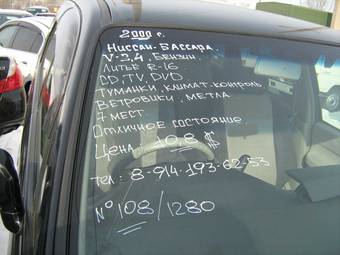 2000 г.
Ниссан-Бассара.
V-2,4, Бензин.
Литьё R-16
CD, TV, DVD
Туманки, климат-контроль
Ветровики, метла
7 мест
Отличное состояние
Цена: 10,8 $
Тел: 8-914-193-62-53
№ 108/1280